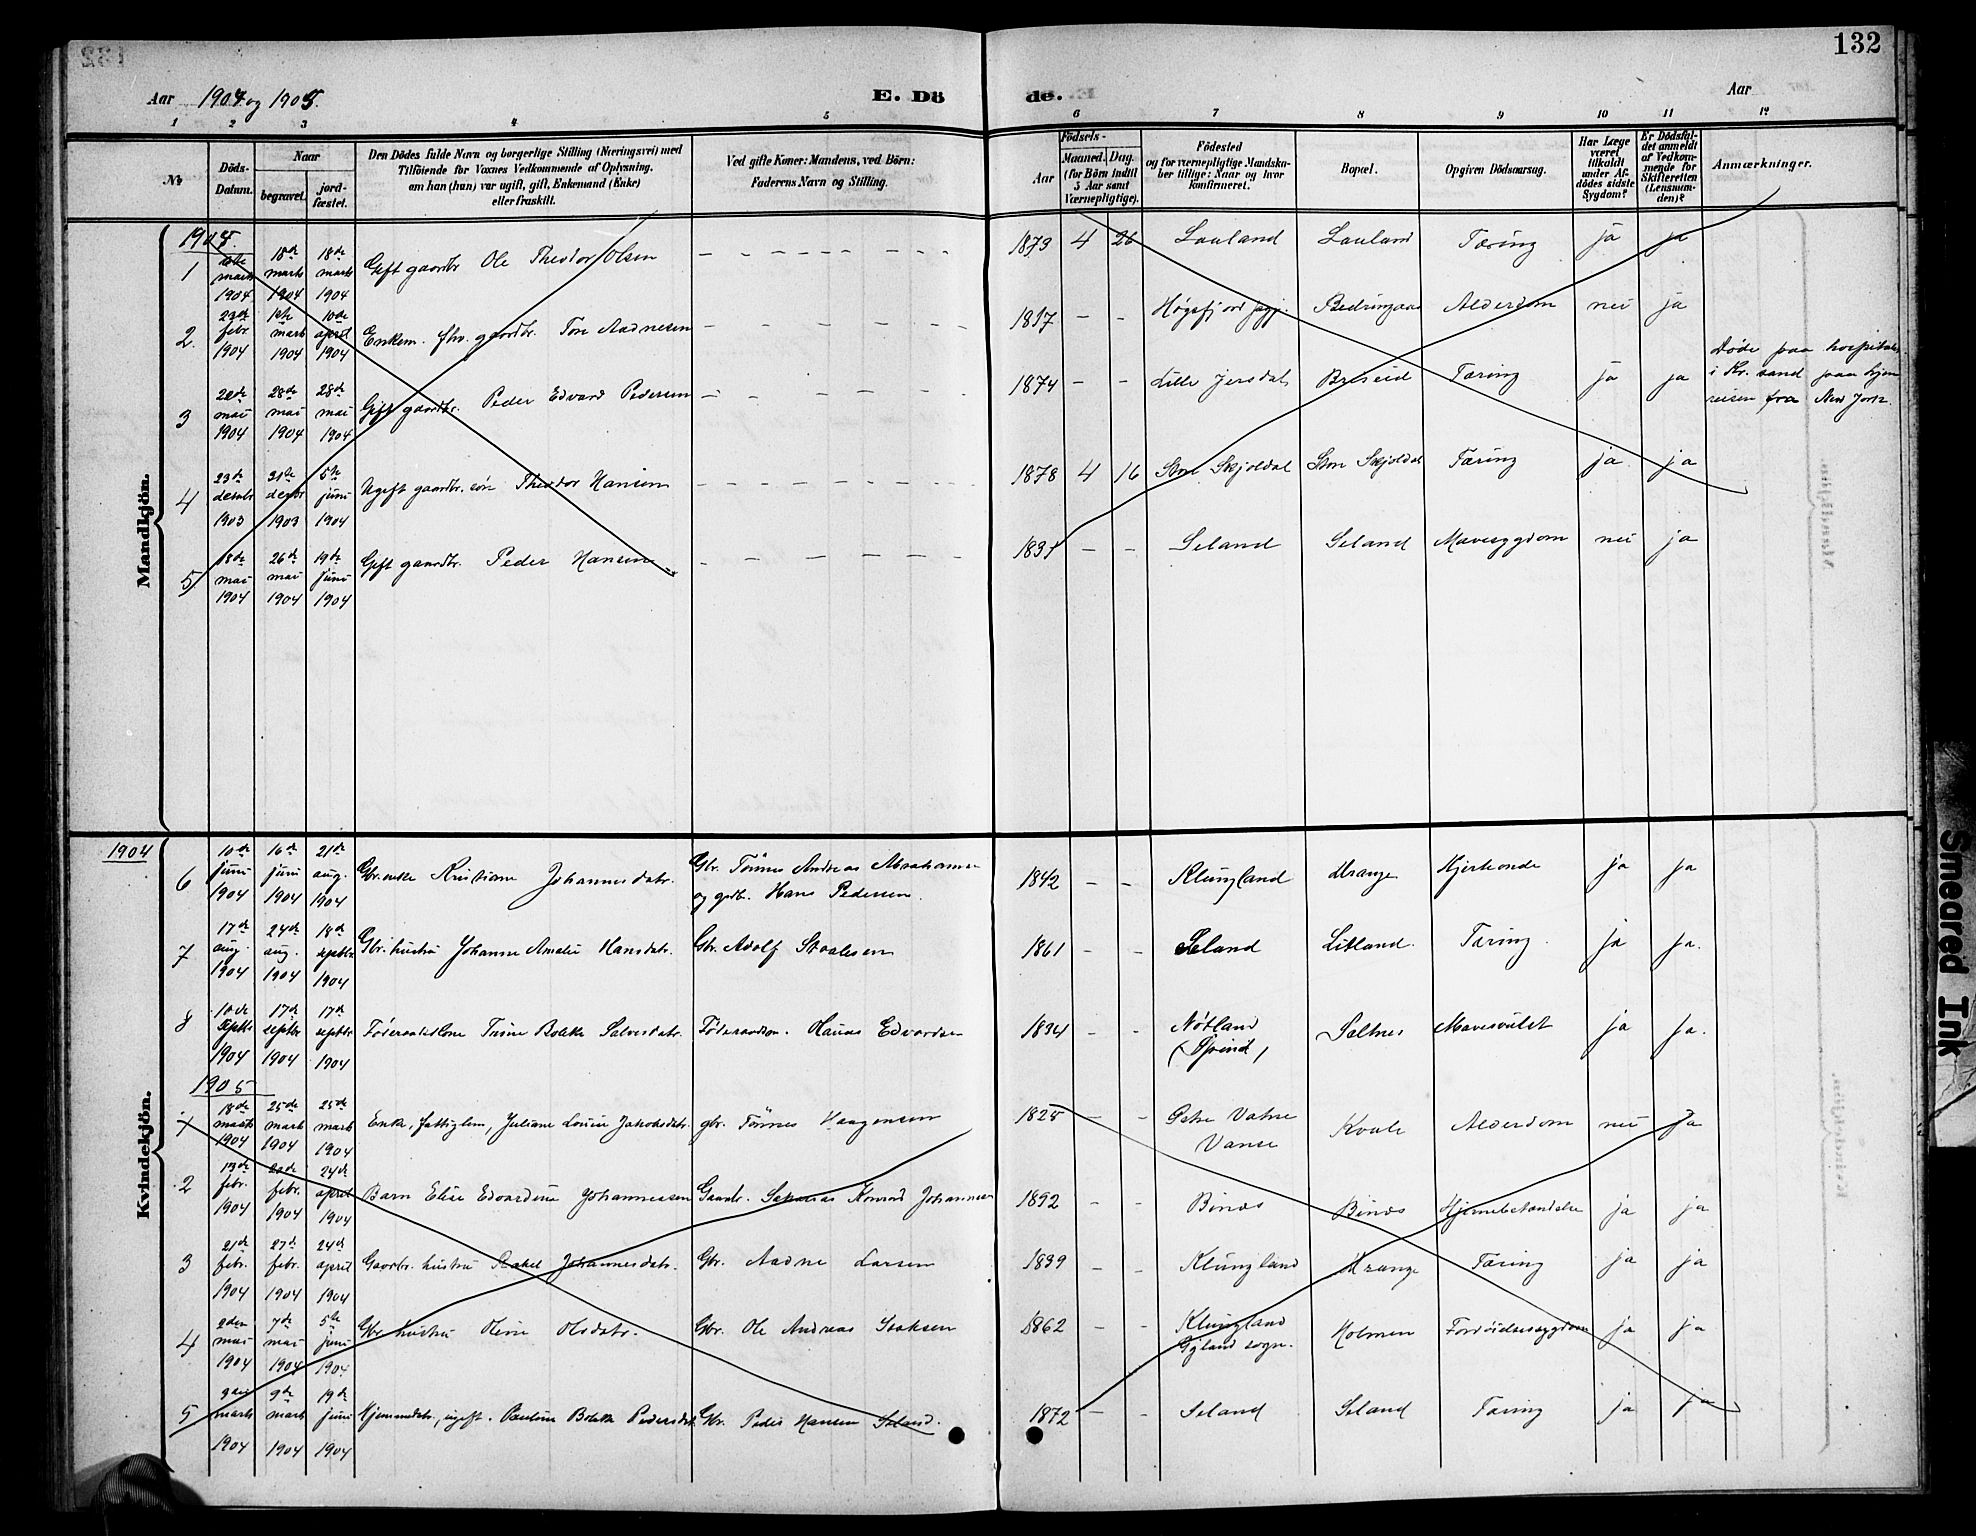 132
Aar 1904 og 1905.
E. Dö de.
Aar
1 2 3 4 5 6 7 8 9 10 11 12
№
Döds-Datum.
Naar
begravet.
jord-fæstet.
Den Dödes fulde Navn og borgerlige Stilling (Næringsvei) med
Tilföiende for Voxnes Vedkommende af Oplysning,
om han (hun) var ugift, gift, Enkemand (Enke)
eller fraskilt.
Ved gifte Koner: Mandens, ved Börn:
Faderens Navn og Stilling.
Födsels-
Aar
Maaned. Dag.
(for Börn indtil
5 Aar samt
Værnepligtige).
Födested
og for værnepligtige Mandska-
ber tillige: Naar og hvor
konfirmeret.
Bopæl.
Opgiven Dödsaarsag.
Har Læge
været
tilkaldt
under Af-
dödes sidste
Sygdom?
Er Dödsfal-
det anmeldt
af Vedkom-
mende for
Skifteretten
(Lensman-
den)?
Anmærkninger.
Mandkjön.
1905.
1 marts 1904 18de marts 1904 18de marts 1904 Gift gaardbr. Ole Theodor Olsen 1879 4 26 Lauland Lauland Tæring ja ja
2. 23de febr. 1904 marts 1904 10de april 1904 Enkem. fhv. gaardbr. Tore Aadnesen 1817 - - Høgsfjord pgj. Alderdom nei ja
3 mai 1904 28de mai 1904 28de mai 1904 Gift gaardbr. Peder Edvard Pedersen 1874 - - Lille Jersdal Briseid Tæring ja ja Døde paa hospitalet
i Kr.sand paa hjem
reisen fra New York.
4 23de desbr 1903 31te desbr 1903 5te juni 1904 Ugift gaardbr. søn Theodor Hansen 1878 4 16 Store Skjoldal Store Skjoldal Tæring ja ja
5 18de mai 1904 26de mai 1904 19de juni 1904 Gift gaardbr. Peder Hansen 1831 - - Seland Seland Mavesygdom nei ja
Kvindekjön.
1904
6 10de juni 1904 16de juni 1904 21de aug. 1904 Gbr.enke Kristiane Johannesdatr. Gbr. Tönnes Andreas Abrahamsen
og gbr. Hans Pedersen. 1842 - - Klungland Urange Hjerteonde ja ja
7 17de aug. 1904 24de aug. 1904 18de septbr 1904 Gbr. hustru Johanne Amalie Hansdatr. Gbr. Adolf Staalesen 1861 - - Seland Litland. Tæring. ja ja.
8 10de septbr 1904 17de septbr 1904 17de septbr 1904 Føderaadskone Trine Bolette Salvesdatr. Føderaadsm. Edvardsen 1834 - - Nøtland
(Spind) Saltnes Mavesvulst ja ja.
1905
1 18de marts 1904 25de marts 1904 25de marts 1904 Enke, fattiglem, Juliane Louise Jakobsdatr. gbr. Tønnes Haagensen 1825 - - Østre Vatne
Vanse Kvale Alderdom nei ja
2 13de febr. 1904 20de febr. 1904 24de april 1904 Barn Elise Edvardine Johannessen Gaardbr. Konrad Johannesen 1892 - - Bindes Bindes Hjernebetændelse ja ja
3 21de febr. 1904 27de febr. 1904 24de april 1904 Gaardbr. hustru Rakel Johannesdatr. Gbr. Aadne Larsen 1839 - - Klungland Urange Tæring ja ja
4 2den mai 1904 7de mai 1904 5te juni 1904 Gbr. hustru Oline Olsdatr. Gbr. Ole Andreas Isaksen 1862 - - Klungland
Gyland sogn. Holmen ja ja
5 marts 1904 9de marts 1904 19de juni 1904 Hjemmedatr., ugift. Pauline Bolette Pedersdatr. Gbr. Peder Hansen Seland. 1872 - - Seland Seland Tæring ja ja
Smeared Ink